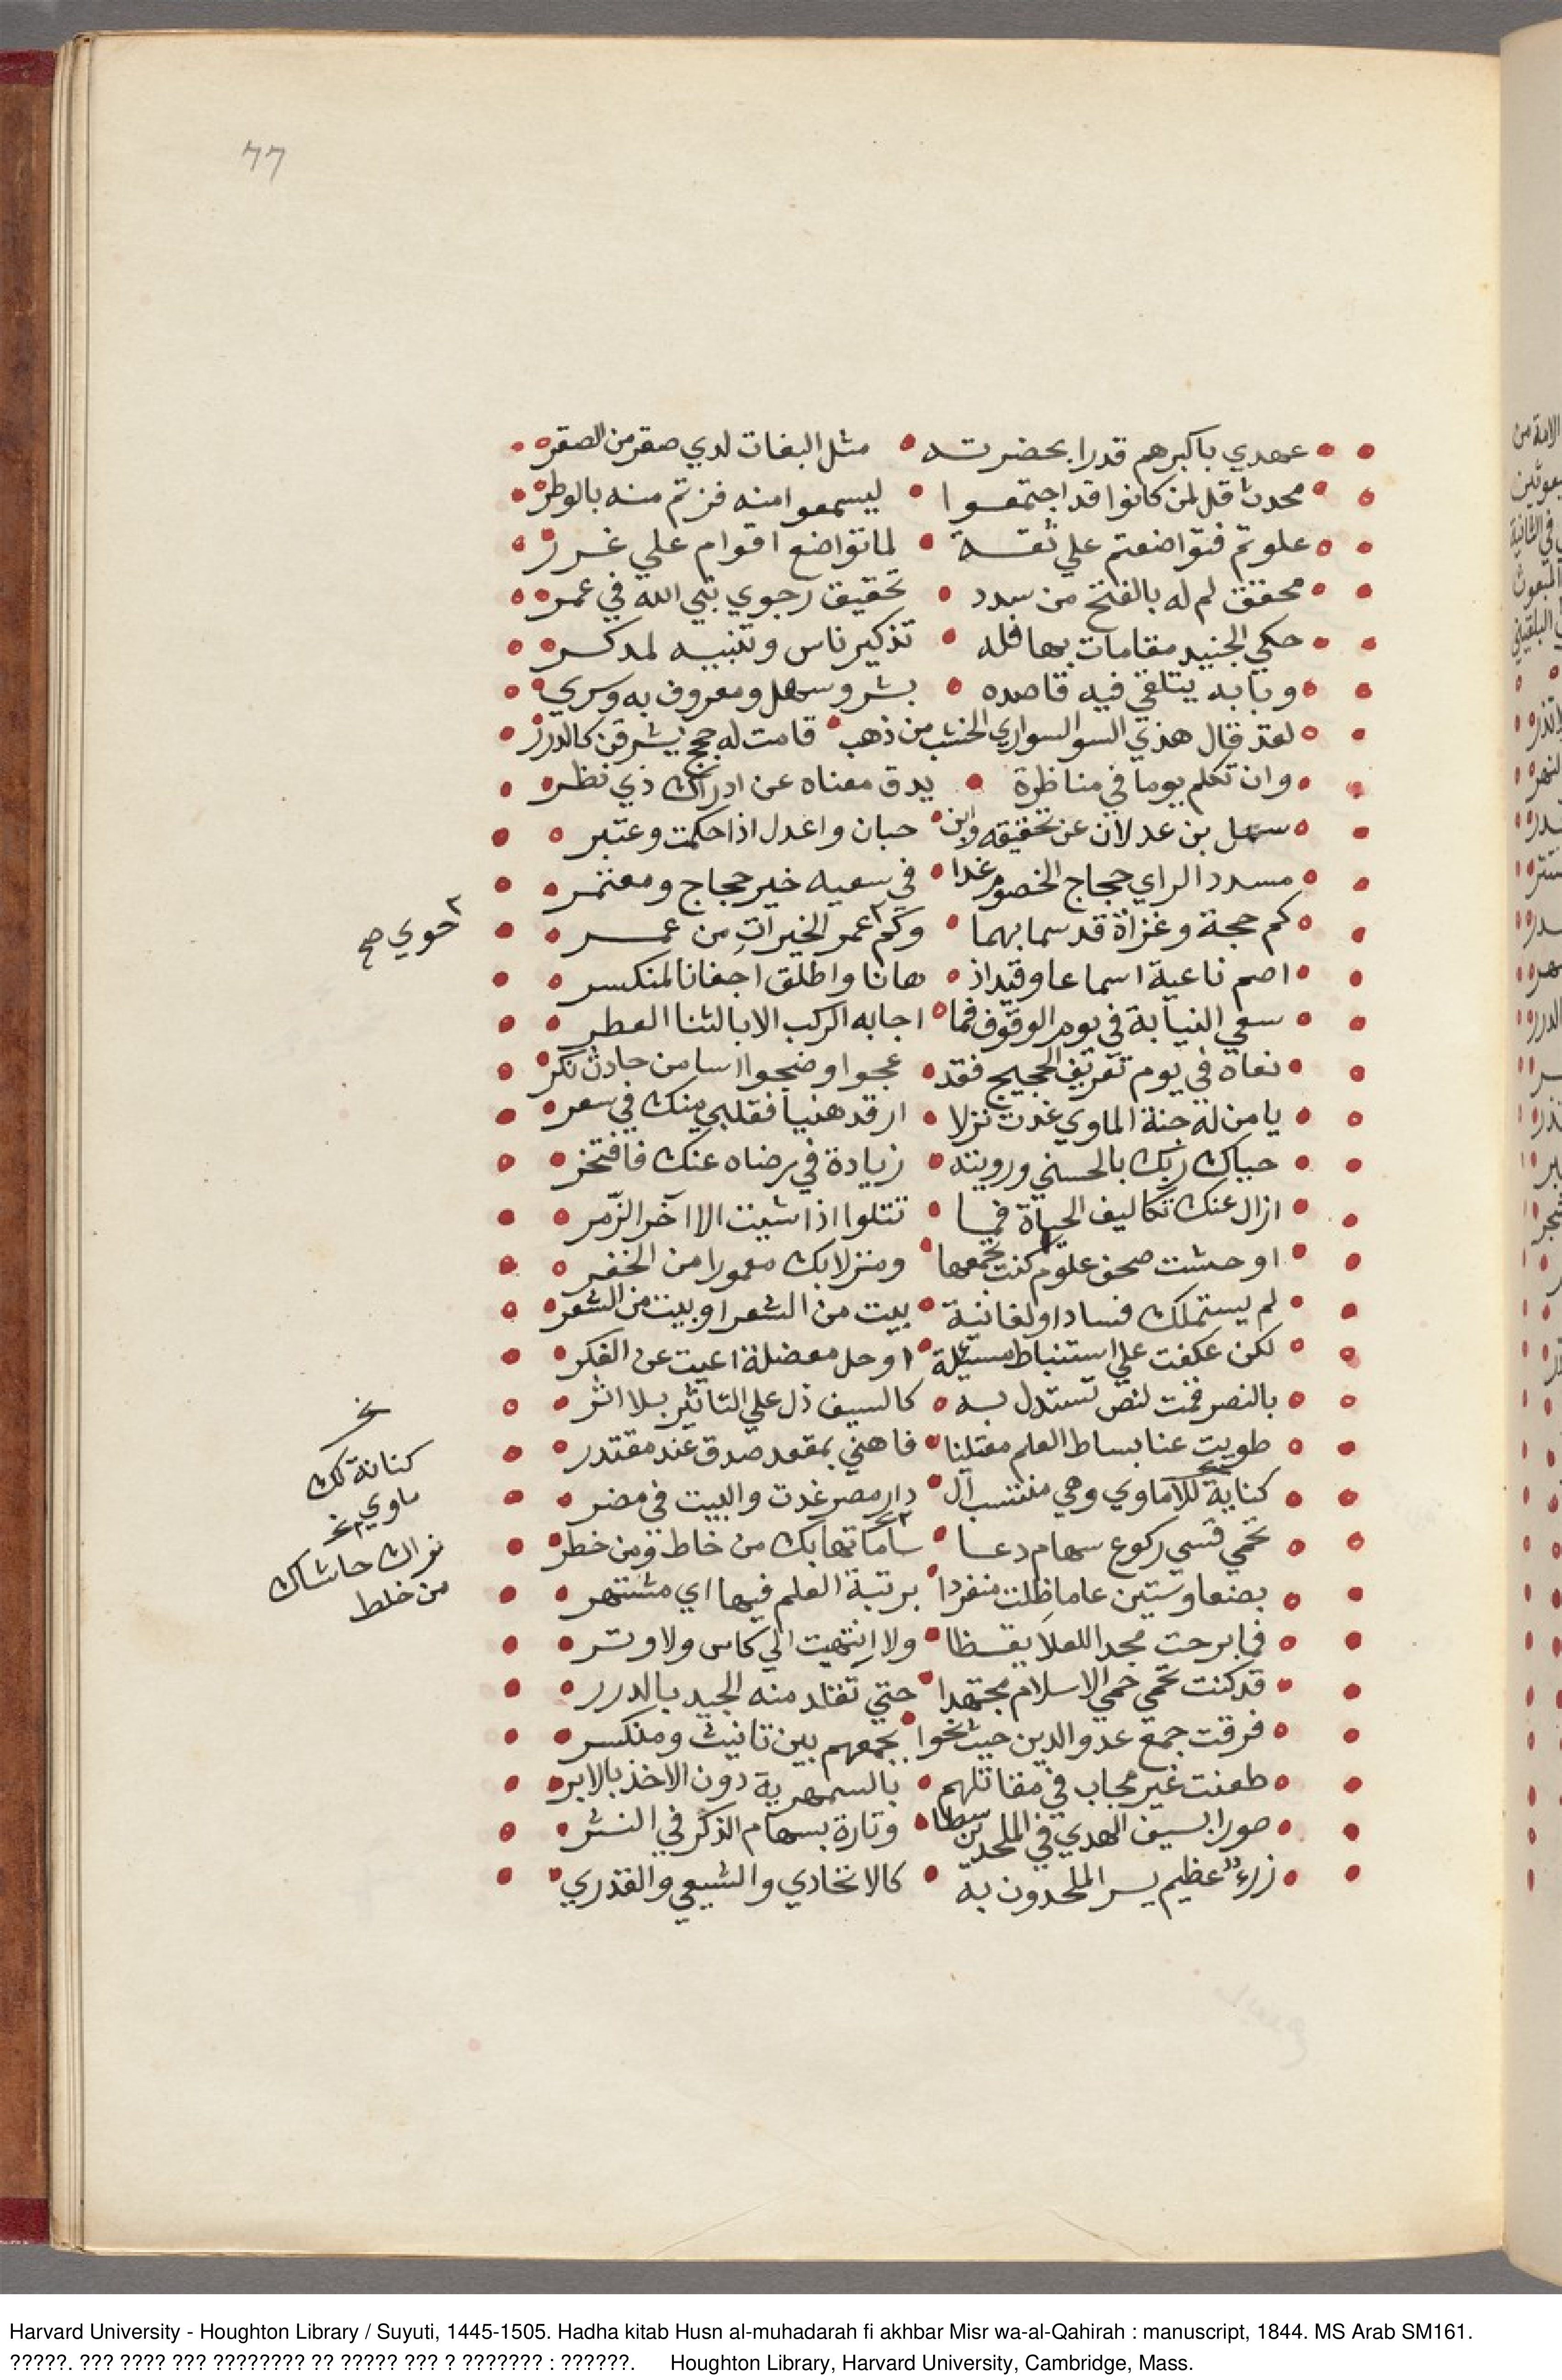 77
عهدي باكبرهم قدرا بحضرته • مثل البغاث لدي صقر من الصقر
محدث قل لمن كانوا قد اجتمعوا • ليسمعوا منه فزتم منه بالوطر
علوتم فتواضعتم علي ثقة • لما تواضع اقوام علي غرر
محقق لم له بالفتح من سدد • تحقيق رجوي نبي الله في عمر
حكي الجنيد مقامات بها فله • تذكير ناس وتنبيه لمدكر
وبابه يتلقي فيه قاصده • بشر وسهل ومعروف به وسري
لقد قال هذي السو السواري الخشب من ذهب • قامت له حجج يشرقن كالدرر
وان تكلم يوما في مناظرة • يدق معناه عن ادراك ذي نظر
سهل بن عدلان عن تحقيقه وابن • حبان واعدل اذا حكمت وعتبر
مسدد الراي حجاج الخصوم غدا • في سعيه خير حجاج ومعتمر
كم حجة وغزاة قد سما بهما • وكم عمر الخيرات من عمر
حوي صح
اصم ناعية اسماعا وقيد اذ • هانا واطلق اجفانا لمنكسر
سعي النيابة في يوم الوقوف فما • اجابه الركب الا بالثنا العطر
نعاه في يوم تعريف الحجيج فقد • عجوا وضجوا اسا من حادث نكر
يا من له جنة الماوي غدت نزلا • ارقد هنيا فقلبي منك في سعر
حباك ربك بالحسني ورويته • زيادة في رضاه عنك فافتخر
ازال عنك تكاليف الحياة فما • تتلوا اذا شيت الا اخر الزمر
اوحشت صحف علوم كنت تجمعها • ومنزلا بك معمورا من الخفر
لم يستملك فسادا ولغانية • بيت من الشعر او بيت من الشعر
لكن عكفت علي استنباط مسئلة • او حل معضلة اعيت عن الفكر
بالنصر قمت لنص تستدل به • كالسيف دل علي التاثير بلا اثر
طويت عنا بساط العلم معتليا • فاهني بمقعد صدق عند مقتدر
كناية للاماوي وهي منتسب ال • دار مصر غدت والبيت في مضر
كنانة لك
ماوي
تحمي قسي ركوع سهام دعا • ساماتها بك من خاط ومن خطر
نراك حاشاك
من خلط
بضعا وستين عاما ظلت منفردا • برتبة العلم فيها اي مشتهر
فما برحت مجد اللعلا يقظا • ولا انتهيت الي كاس ولا وتر
قد كنت تحمي حمي الاسلام مجتهدا • حتي تقلد منه الجيد بالدرر
فرقت جمع عدو الدين حيث نحوا • بجمعهم بين تانيث ومنكسر
طعنت غير محاب في مقاتلهم • بالسمهرية دون الاخذ بالابر
طورا بسيف الهدي في الملحدين سطا • وتارة بسهام الذكر في النشر
زرء عظيم يسر الملحدون به • كالاتحادي والشيعي والقدري
Harvard University - Houghton Library / Suyuti, 1445-1505. Hadha kitab Husn al-muhadarah fi akhbar Misr wa-al-Qahirah : manuscript, 1844. MS Arab SM161.
?????. ??? ???? ??? ???????? ?? ????? ??? ? ??????? : ??????. Houghton Library, Harvard University, Cambridge, Mass.